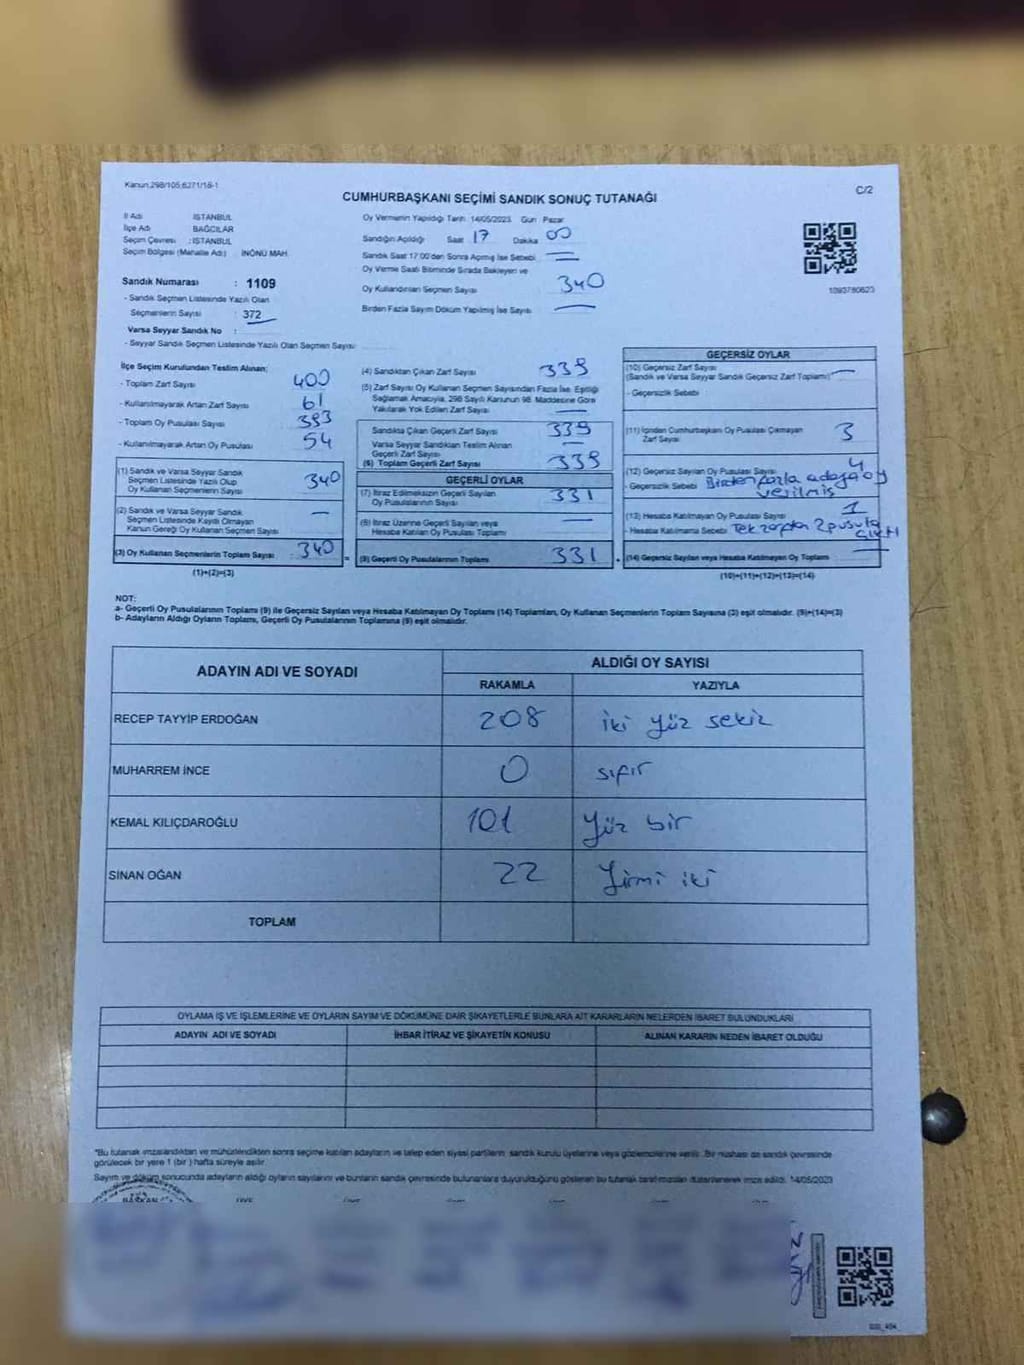 Kanun.298/105,6271/18-1
C/2
CUMHURBAŞKANI SEÇİMİ SANDIK SONUÇ TUTANAĞI
İl Adı : İSTANBUL
İlçe Adı : BAĞCILAR
Seçim Çevresi : İSTANBUL
Seçim Bölgesi (Mahalle Adı) : İNÖNÜ MAH.
Sandık Numarası : 1109
- Sandık Seçmen Listesinde Yazılı Olan
Seçmenlerin Sayısı : 372
Varsa Seyyar Sandık No :
- Seyyar Sandık Seçmen Listesinde Yazılı Olan Seçmen Sayısı
Oy Vermenin Yapıldığı Tarih: 14/05/2023 Gün: Pazar
Sandığın Açıldığı Saat 17 Dakika 00
Sandık Saat 17:00'den Sonra Açılmış İse Sebebi —
Oy Verme Saati Bitiminde Sırada Bekleyen ve
Oy Kullandırılan Seçmen Sayısı 340
Birden Fazla Sayım Döküm Yapılmış İse Sayısı —
1093780623
İlçe Seçim Kurulundan Teslim Alınan:
- Toplam Zarf Sayısı 400
- Kullanılmayarak Artan Zarf Sayısı 61
- Toplam Oy Pusulası Sayısı 393
- Kullanılmayarak Artan Oy Pusulası 54
(1) Sandık ve Varsa Seyyar Sandık
Seçmen Listesinde Yazılı Olup
Oy Kullanan Seçmenlerin Sayısı 340
(2) Sandık ve Varsa Seyyar Sandık
Seçmen Listesinde Kaydı Olmayan
Kanun Gereği Oy Kullanan Seçmen Sayısı —
(3) Oy Kullanan Seçmenlerin Toplam Sayısı : 340
(1)+(2)=(3)
(4) Sandıktan Çıkan Zarf Sayısı 339
(5) Zarf Sayısı Oy Kullanan Seçmen Sayısından Fazla İse, Eşitliği
Sağlamak Amacıyla, 298 Sayılı Kanunun 98. Maddesine Göre
Yakılarak Yok Edilen Zarf Sayısı —
Sandıkta Çıkan Geçerli Zarf Sayısı 339
Varsa Seyyar Sandıktan Teslim Alınan
Geçerli Zarf Sayısı —
(6) Toplam Geçerli Zarf Sayısı 339
GEÇERLİ OYLAR
(7) İtiraz Edilmeksizin Geçerli Sayılan
Oy Pusulalarının Sayısı 331
(8) İtiraz Üzerine Geçerli Sayılan veya
Hesaba Katılan Oy Pusulaları Toplamı —
(9) Geçerli Oy Pusulalarının Toplamı 331
GEÇERSİZ OYLAR
(10) Geçersiz Zarf Sayısı
(Sandık ve Varsa Seyyar Sandık Geçersiz Zarf Toplamı) —
- Geçersizlik Sebebi
(11) İçinden Cumhurbaşkanı Oy Pusulası Çıkmayan
Zarf Sayısı 3
(12) Geçersiz Sayılan Oy Pusulası Sayısı 4
- Geçersizlik Sebebi Birden fazla adaya oy
verilmiş
(13) Hesaba Katılmayan Oy Pusulası Sayısı 1
- Hesaba Katılmama Sebebi Tek zarftan 2 pusula
çıktı
(14) Geçersiz Sayılan veya Hesaba Katılmayan Oy Toplamı —
(10)+(11)+(12)+(13)=(14)
NOT:
a- Geçerli Oy Pusulalarının Toplamı (9) ile Geçersiz Sayılan veya Hesaba Katılmayan Oy Toplamı (14) Toplamları, Oy Kullanan Seçmenlerin Toplam Sayısına (3) eşit olmalıdır. (9)+(14)=(3)
b- Adayların Aldığı Oyların Toplamı, Geçerli Oy Pusulalarının Toplamına (9) eşit olmalıdır.
ADAYIN ADI VE SOYADI
ALDIĞI OY SAYISI
RAKAMLA YAZIYLA
RECEP TAYYİP ERDOĞAN 208 iki yüz sekiz
MUHARREM İNCE 0 sıfır
KEMAL KILIÇDAROĞLU 101 Yüz bir
SİNAN OĞAN 22 Yirmi iki
TOPLAM
OYLAMA İŞ VE İŞLEMLERİNE VE OYLARIN SAYIM VE DÖKÜMÜNE DAİR ŞİKAYETLERLE BUNLARA AİT KARARLARIN NELERDEN İBARET BULUNDUKLARI
ADAYIN ADI VE SOYADI İHBAR İTİRAZ VE ŞİKAYETİN KONUSU ALINAN KARARIN NEDEN İBARET OLDUĞU
*Bu tutanak imzalandıktan ve mühürlendikten sonra seçime katılan adayların ve talep eden siyasi partilerin sandık kurulu üyelerine veya gözlemcilerine verilir. Bir nüshası da sandık çevresinde
görülecek bir yere 1 (bir ) hafta süreyle asılır.
Sayım ve döküm sonucunda adayların aldığı oyların sayılarını ve bunların sandık çevresinde bulunanlara duyurulduğunu gösteren bu tutanak tarafımızdan düzenlenerek imza edildi. 14/05/2023
BAŞKAN